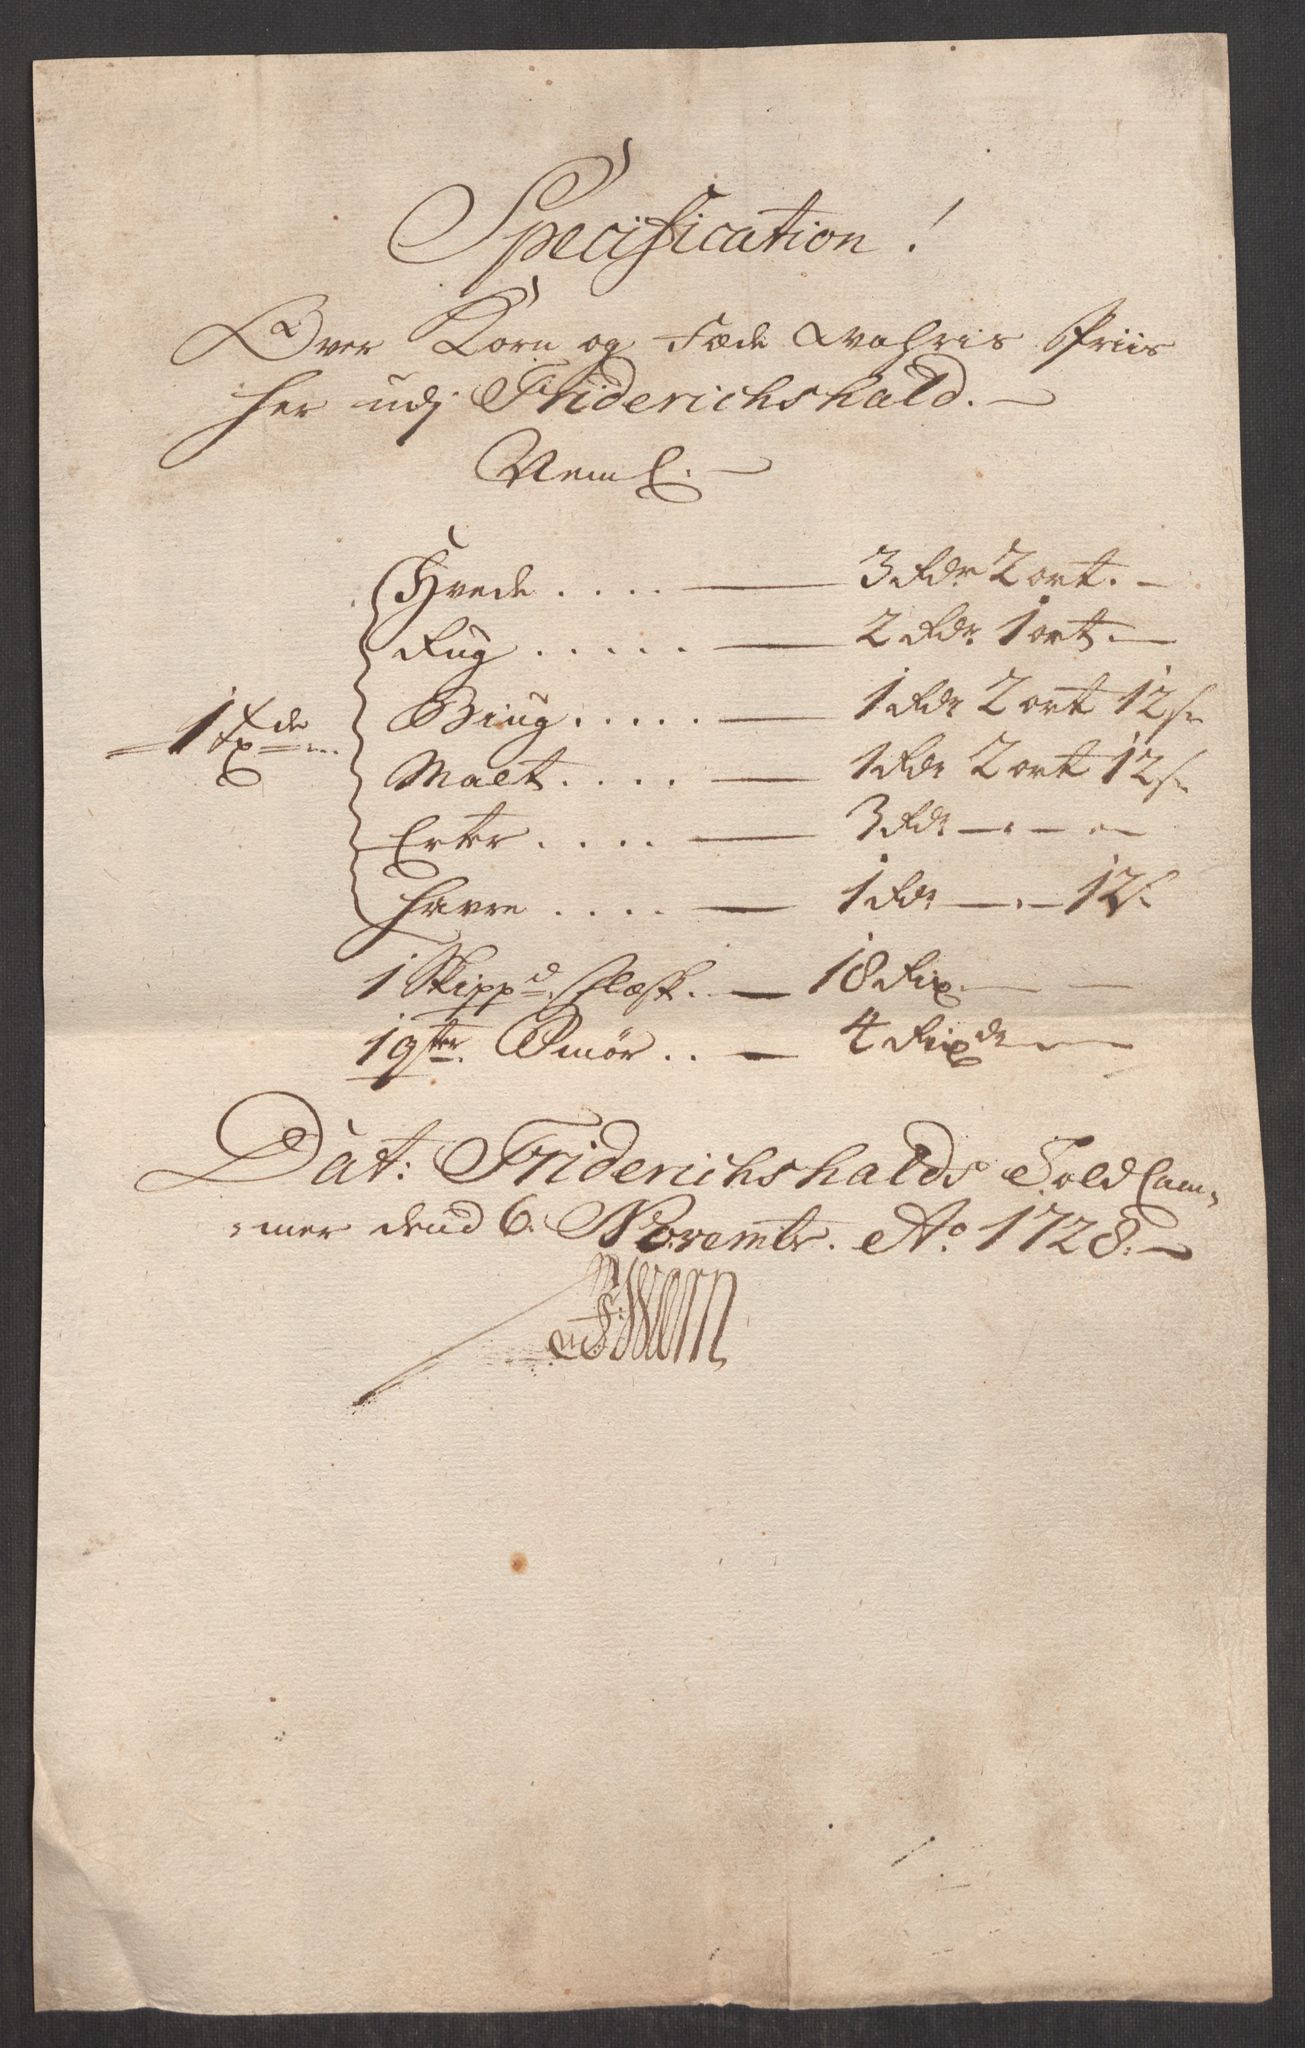 Specification!
Over Korn og Fæde Wahris Priis
her udj Friderichshald. —
Neml. —
Hvede . . . . — 3 Rdr 2 ort. —
Rug . . . . . — 2 Rdr. 1 ort. —
1 Tøde
Biug . . . . . — 1 Rdr 2 ort 12 s
Malt . . . . — 1 Rdr 2 ort 12 s
Erter . . . . — 3 Rdr — . — . —
Havre . . . . — 1 Rdr — . — 12 s
1 Skippd. Flæsk . — 18 Rix — —
1 qter. Smør . . — 4 Rixdr — —
Dat: Friderichshalds Told Cam¬
mer dend 6. Novembr. Ao. 1728. —